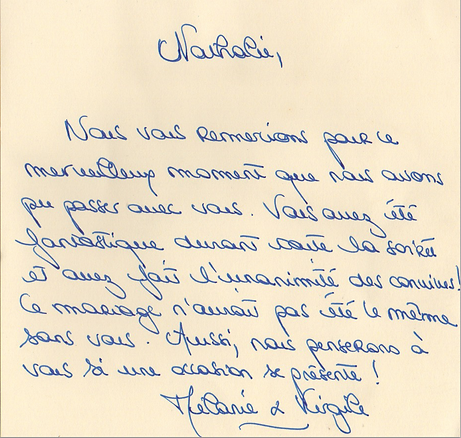 Nathalie,
Nous vous remercions pour ce
merveilleux moment que nous avons
pu passer avec vous. Vous avez été
fantastique durant toute la soirée
et avez fait l'unanimité des convives!
Ce mariage n'aurait pas été le même
sans vous. Aussi, nous penserons à
vous si une occasion se présente!
Mélanie & Virgile